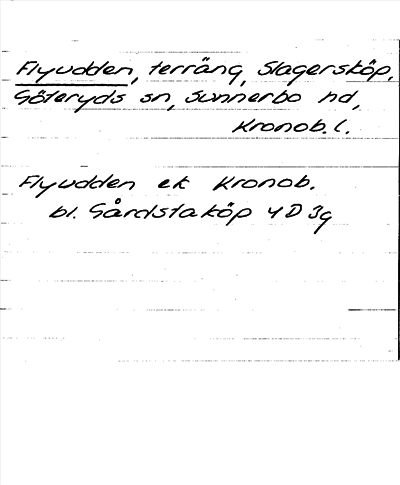 Flyudden, terräng, Slagersköp,
Göteryds sn, Sunnerbo hd,
Kronob. l.
Flyudden ek Kronob.
bl. Gårdstaköp 4D 3g